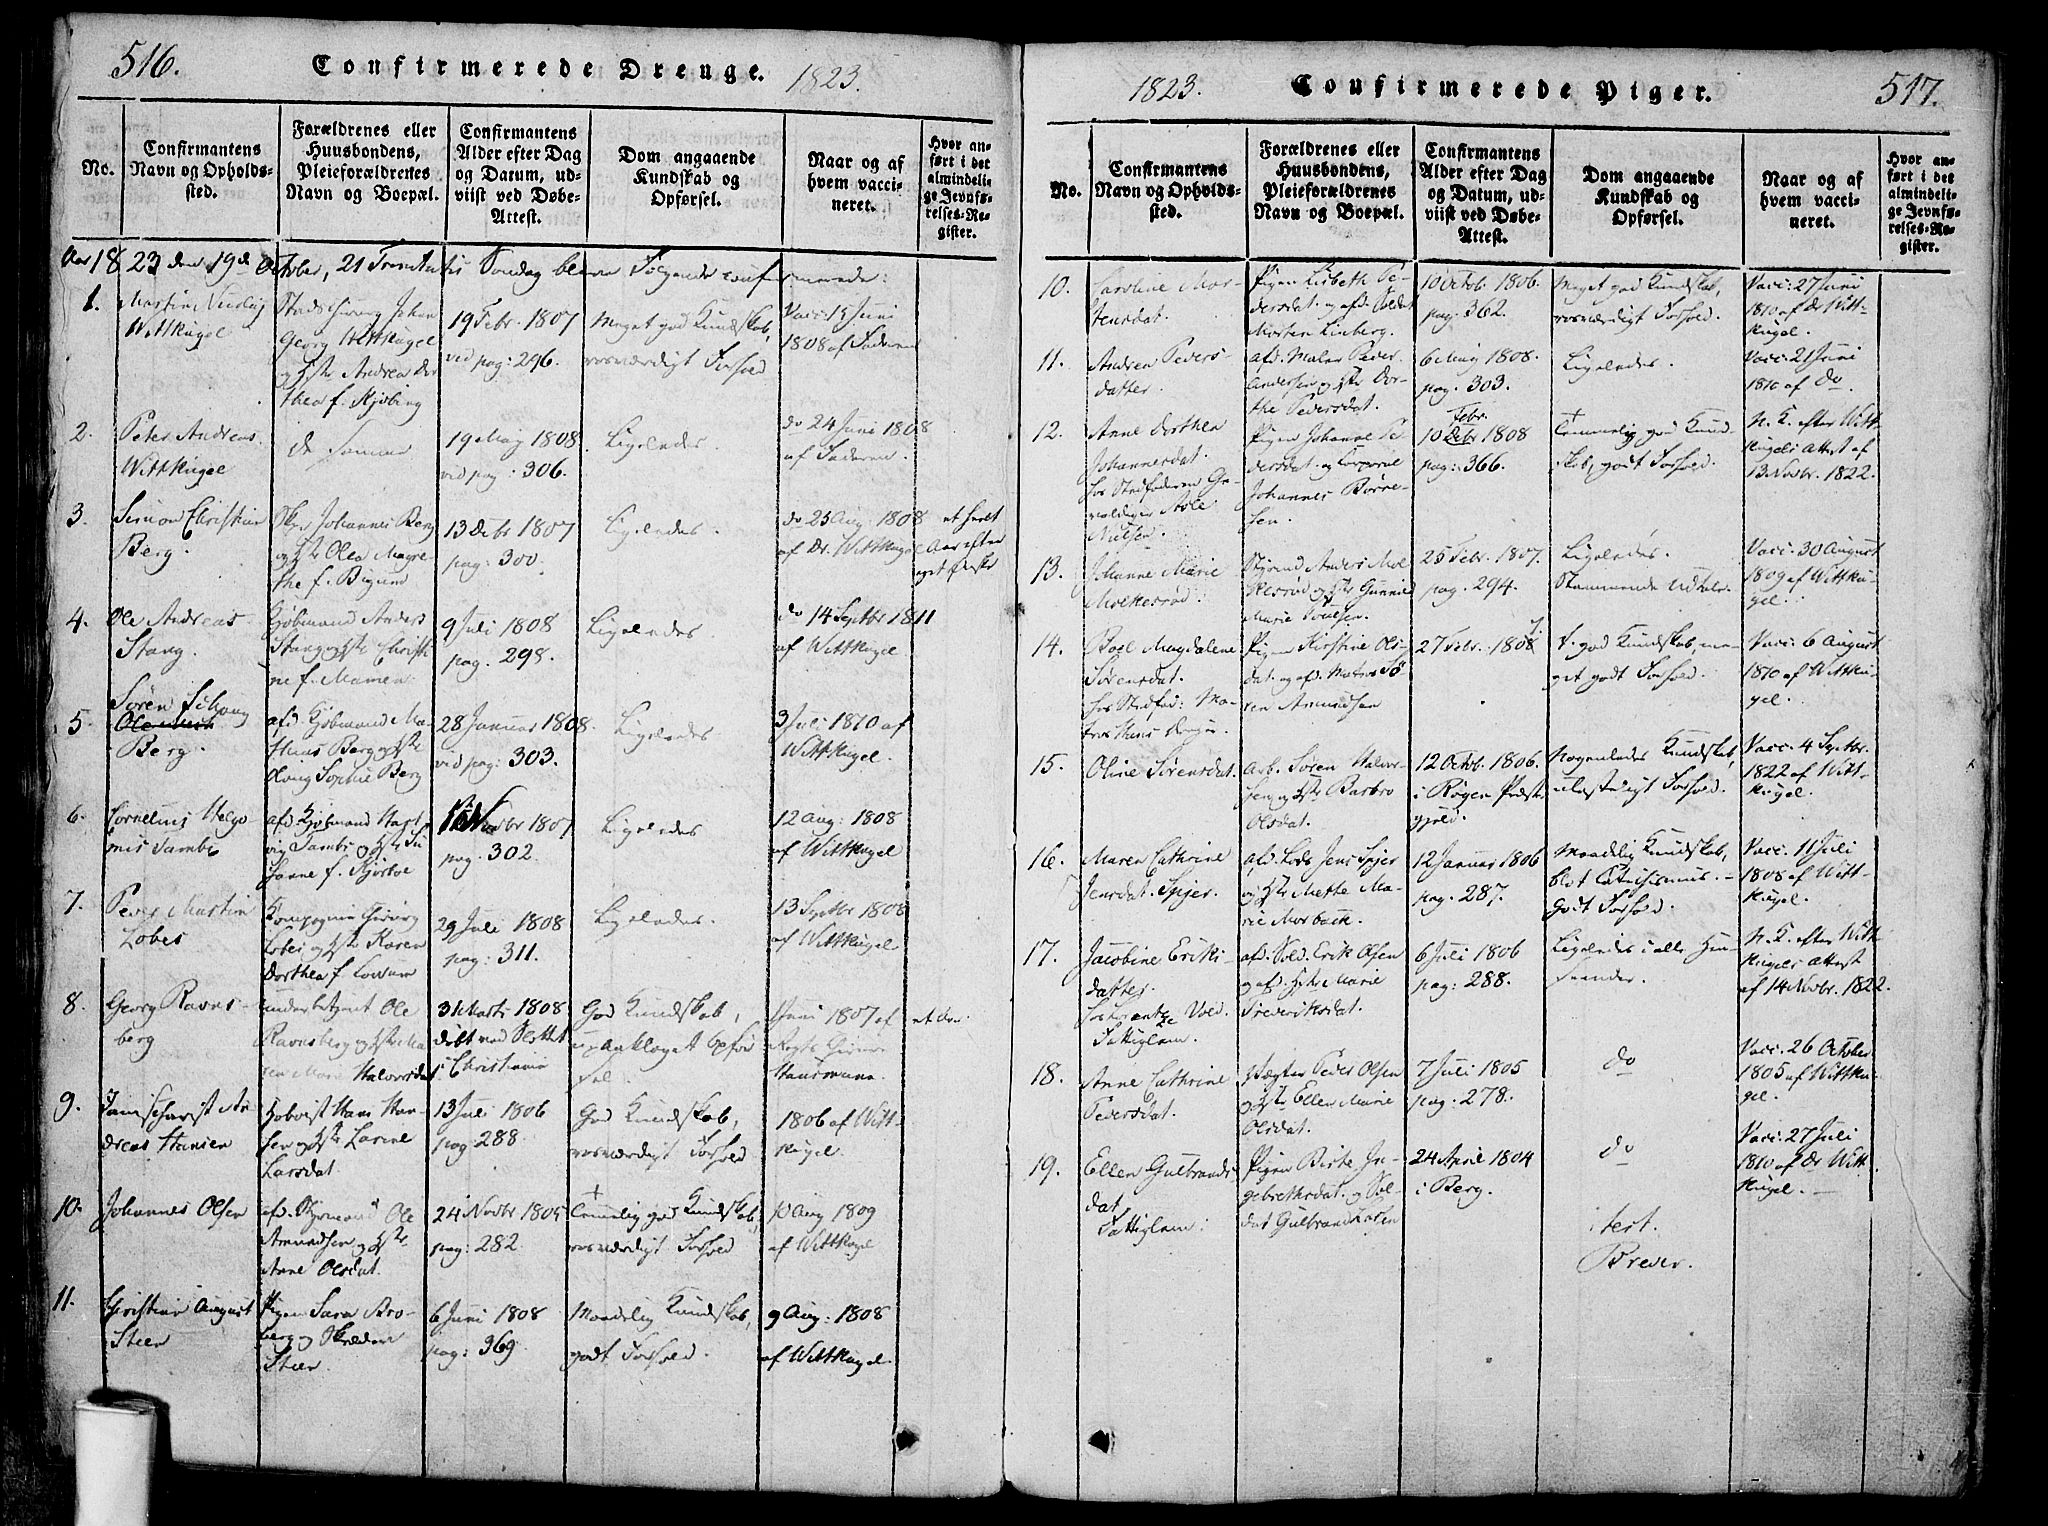 516.
Confirmerede Drenge.
1823.
No.
Confirmantens
Navn og Opholds-
sted.
Forældrenes eller
Huusbondens,
Pleieforældrenes
Navn og Boepæl.
Confirmantens
Alder efter Dag
og Datum, ud-
viist ved Døbe-
Attest.
Dom angaaende
Kundskab og
Opførsel.
Naar og af
hvem vacci-
neret.
Hvor an-
ført i det
almindeli-
ge Jevnfø-
relses-Re-
gister.
Aar 1823 den 19de October, 21 Trinitatis Søndag bleve Følgende confirmerede:
1.
Martin
Wittkugel
Stadschirurg Johan
Georg Wittkugel
og Hstr Andrea Dor
thea f. Kjøbing
19 Febr. 1807
ved pag: 296.
Meget god Kundskab,
rosværdigt Forhold
Vacc: 15 Juni
1808 af Faderen
2.
Peter Andreas
Wittkugel
de samme
19 Maij 1808
vid pag: 306.
Ligeledes.
do 24 Juni 1808
af Faderen
3.
Simon Christian
Berg.
Johannes Berg
og Hstr Olea Magre
the f. Bigum
13 Debr 1807
pag: 300.
Ligeledes.
do 23 Aug: 1808
af Dr. Wittkugel
4.
Ole Andreas
Stang.
Kjøbmand Anders
Stang og Hstr Christi
ne f. Mamen
9 Juli 1808
pag. 298.
Ligeledes
do 14 Septbr 1811
af Wittkugel
5.
Søren
Berg.
afd. Kjøbmand Ma-
thias Berg og Hstr
Sophie Berg
28 Januar 1808.
vid pag: 303.
Ligeledes
3 Juli 1810 af
Wittkugel.
6.
Cornelius Helgo-
nius Sambe
afd. Kjøbmand
Sambe og Hstr Su
sanne f.
Novbr 1807
pag. 302.
Ligeledes
12 Aug: 1808
af Wittkugel
7.
Peder Martin
Lobes
Lobes og Hstr Karen
Dorthea f. Lossum
29 Juli 1808
pag: 311.
Ligeledes.
13 Septbr 1808
af Wittkugel
8.
Georg Ravns-
berg
underbetjent Ole
Ravnsberg og Hstr Ma
ren Marie Halvorsdat.
31 Marts 1808
døbt ved Slottet
i Christiania
God Kundskab,
upaaklaget Opfør
sel
Juni 1807 af
9.
dreas Hansen
Hans Han-
sen og Hstr Larine
Larsdat.
13 Juli 1806
pag: 288.
God Kundskab,
rosværdigt Forhold
1806 af Witt-
kugel.
10.
Johannes Olsen
afd. Styrmand Ole
Amundsen og Hstr
Anne Olsdat.
24 Novbr 1805
pag: 282.
Temmelig god Kundskab,
rosværdigt Forhold
10 Aug 1809
af Wittkugel
11.
Christian August
Steen
Pigen Sara Bro-
berg og Skræder
Steen.
6 Juni 1808
pag: 369
Maadelig Kundskab,
godt Forhold.
9 Aug: 1808
af Wittkugel
1823.
Confirmerede Piger.
517.
No.
Confirmantens
Navn og Opholds-
sted.
Forældrenes eller
Huusbondens,
Pleieforældrenes
Navn og Boepæl.
Confirmantens
Alder efter Dag
og Datum, ud-
viist ved Døbe-
Attest.
Dom angaaende
Kundskab og
Opførsel.
Naar og af
hvem vacci-
neret.
Hvor an-
ført i det
almindeli-
ge Jevnfø-
relses-Re-
gister.
10.
Caroline Mor-
tensdat.
Pigen Lisbeth Pe-
dersdat. og afd. Soldat
Morten Linberg.
10 Octob. 1806.
pag. 362.
Meget god Kundskab,
rosværdigt Forhold.
Vacc: 27 Juni
1810 af Dr Witt-
kugel.
11.
Andrea Peders-
datter.
afd. Maler Peder
Andersen og Hstr Dor-
the Pedersdat.
6 Maij 1808.
pag. 303.
Ligeledes.
Vacc: 21 Juni
1810 af do
12.
Anne Dorthea
Johannesdat.
hos Stedfaderen Ge-
valdiger Asle
Nielsen.
Pigen Johanne Pe-
dersdat. og Corporal
Johannes Børre-
sen.
Febr.
10 Debr 1808
pag: 366.
Temmelig god Kund-
skab, godt Forhold.
N. K. efter Witt-
kugels Attest af
13 Novbr. 1822.
13.
Johanne Marie
Molkesrød.
Styrmd Anders Mol
kesrød og Hstr Gunnil
Marie Poulsen.
25 Febr. 1807.
pag. 294.
Ligeledes.
Stammende Udtale.
Vacc: 30 August
1809 af Wittku-
gel.
14.
Boel Magdalene
Sørensdat.
hos Stedfad: Ma-
tros Hans
Pigen Kirstine Ols-
dat. og afd. Matros Sø-
ren Amundsen
27 Febr. 1808
T. god Kundskab, me-
get godt Forhold.
Vacc: 6 August
1810 af Wittku-
gel.
15.
Oline Sørensdat.
arb. Søren Halvor-
sen og Hstr Barbro
Olsdat.
12 Octob. 1806.
i Røgen Præste
gjeld.
Nogenledes Kundskab,
ulasteligt Forhold.
Vacc: 4 Septbr.
1822 af Witt-
kugel.
16.
Maren Cathrine
Jensdat. Spjer.
afd. Lods Jens Spjer
og Hstr Mette Ma-
rie Morback.
12 Januar 1806
pag: 287.
Maadelig Kundskab,
blot Catechismus.
Godt Forhold.
Vacc: 11 Juli
1808 af Witt-
kugel.
17.
Jacobine Eriks-
datter.
Fattiglem.
afd. Sold. Erik Olsen
og afd. Hstr Marie
Frederiksdat.
6 Juli 1806
pag: 288.
Ligeledes i alle Hen-
seender.
N. K. efter Witt
kugels Attest
af 14 Novbr. 1822.
18.
Anne Cathrine
Pedersdat.
Vægter Peder Olsen
og Hstr Ellen Marie
Olsdat.
7 Juli 1805
pag: 278.
do
Vacc: 26 October
1805 af Wittku-
gel.
19.
Ellen Gulbrands
dat
Fattiglem:
Pigen Birte In-
gebrethsdat. og Sol-
dat Gulbrand Larsen
24 April 1804
i Berg.
do
Vacc: 27 Juli
1810 af Dr Witt
kugel.
test.
Breder.